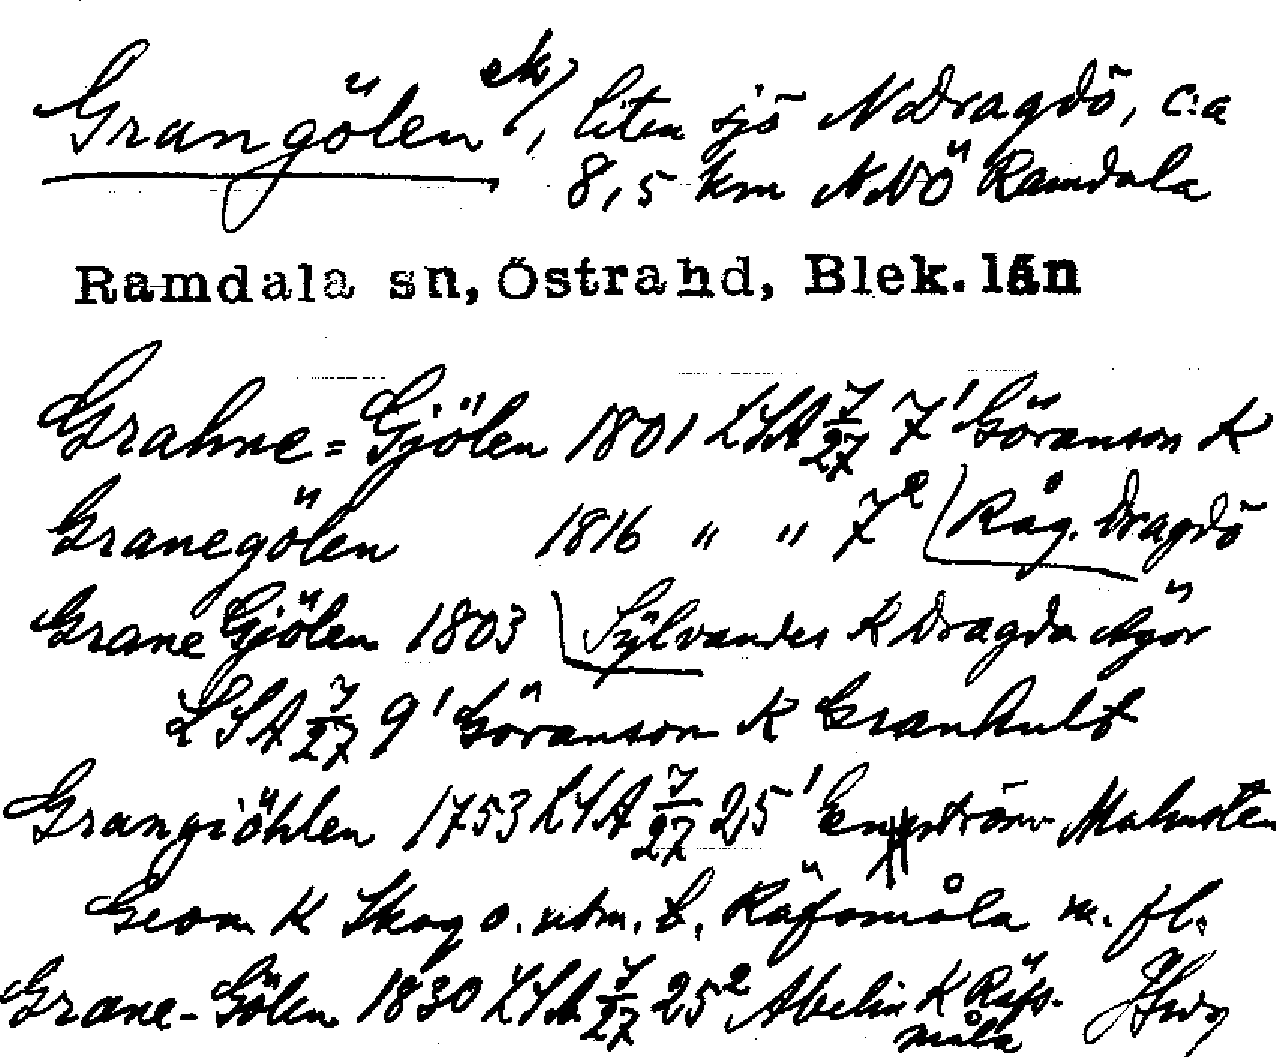 Grangölen ek/, liten sjö N Dragdö, c:a
8,5 km NNÖ Ramdala
Ramdala sn, Östra hd, Blek. län
Grahne=Gjölen 1801 LSA 7/27 7¹ Göranson K
Granegölen 1816 " " 7² Råg. Dragdö
Grane Gjölen 1803 Sylvander K Dragda Ägor
LSA 7/27 9¹ Göranson K Granhult
Grangiöhlen 1753 LSA 7/27 25¹ Enström Malmsten
Geom K Skog o. utm. t. Räfsmåla m. fl.
Grane-Gölen 1830 LSA 7/27 25² Abelin K Räfs-
måla